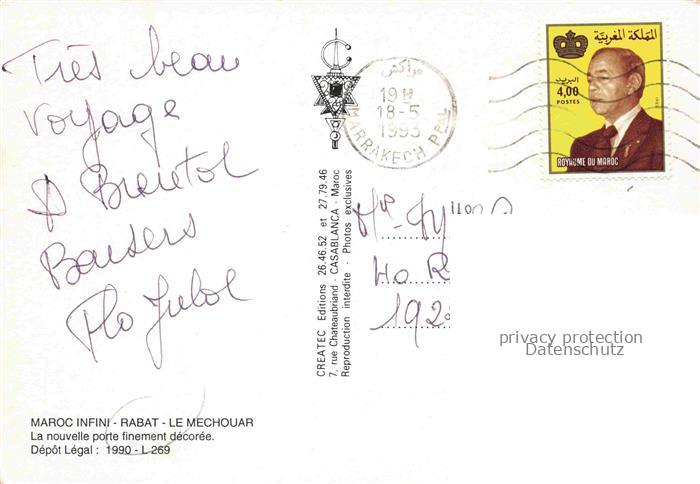 Très beau
voyage
A Breutot
Baisers
Flo
MAROC INFINI - RABAT - LE MECHOUAR
La nouvelle porte finement décorée.
Dépôt Légal : 1990 - L 269
CREATEC Editions 26.46.52 et 27.79.46
7, rue Chateaubriand - CASABLANCA - Maroc
Reproduction interdite - Photos exclusives
مراكش
19H
18-5
1993
MARRAKECH PPAL
المملكة المغربية
البريد
4,00
POSTES
ROYAUME DU MAROC
192
privacy protection
Datenschutz